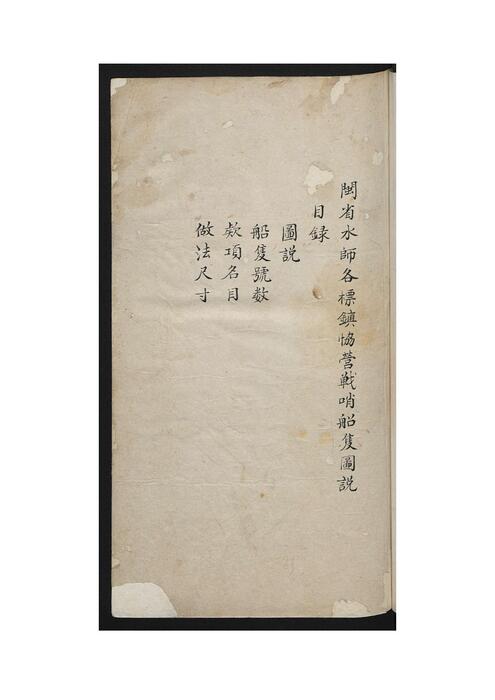 閩省水師各標鎮恊營戰哨船隻圖説
目録
圖説
船隻號數
欵項名目
做法尺寸